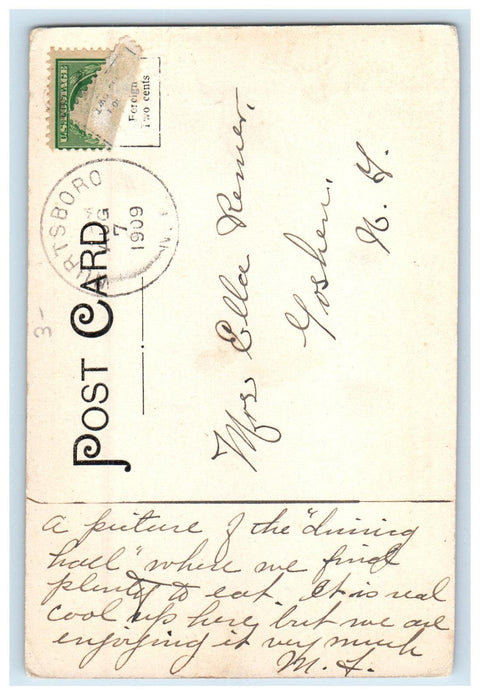 POST CARD
Foreign
Two cents
U.S. POSTAGE
WURTSBORO
AUG
7
1909
N.Y.
3-
Mrs Ella Remer,
Goshen,
N. Y.
A picture of the "dining
hall" where we find
plenty to eat. It is real
cool up here, but we are
enjoying it very much
M. L.